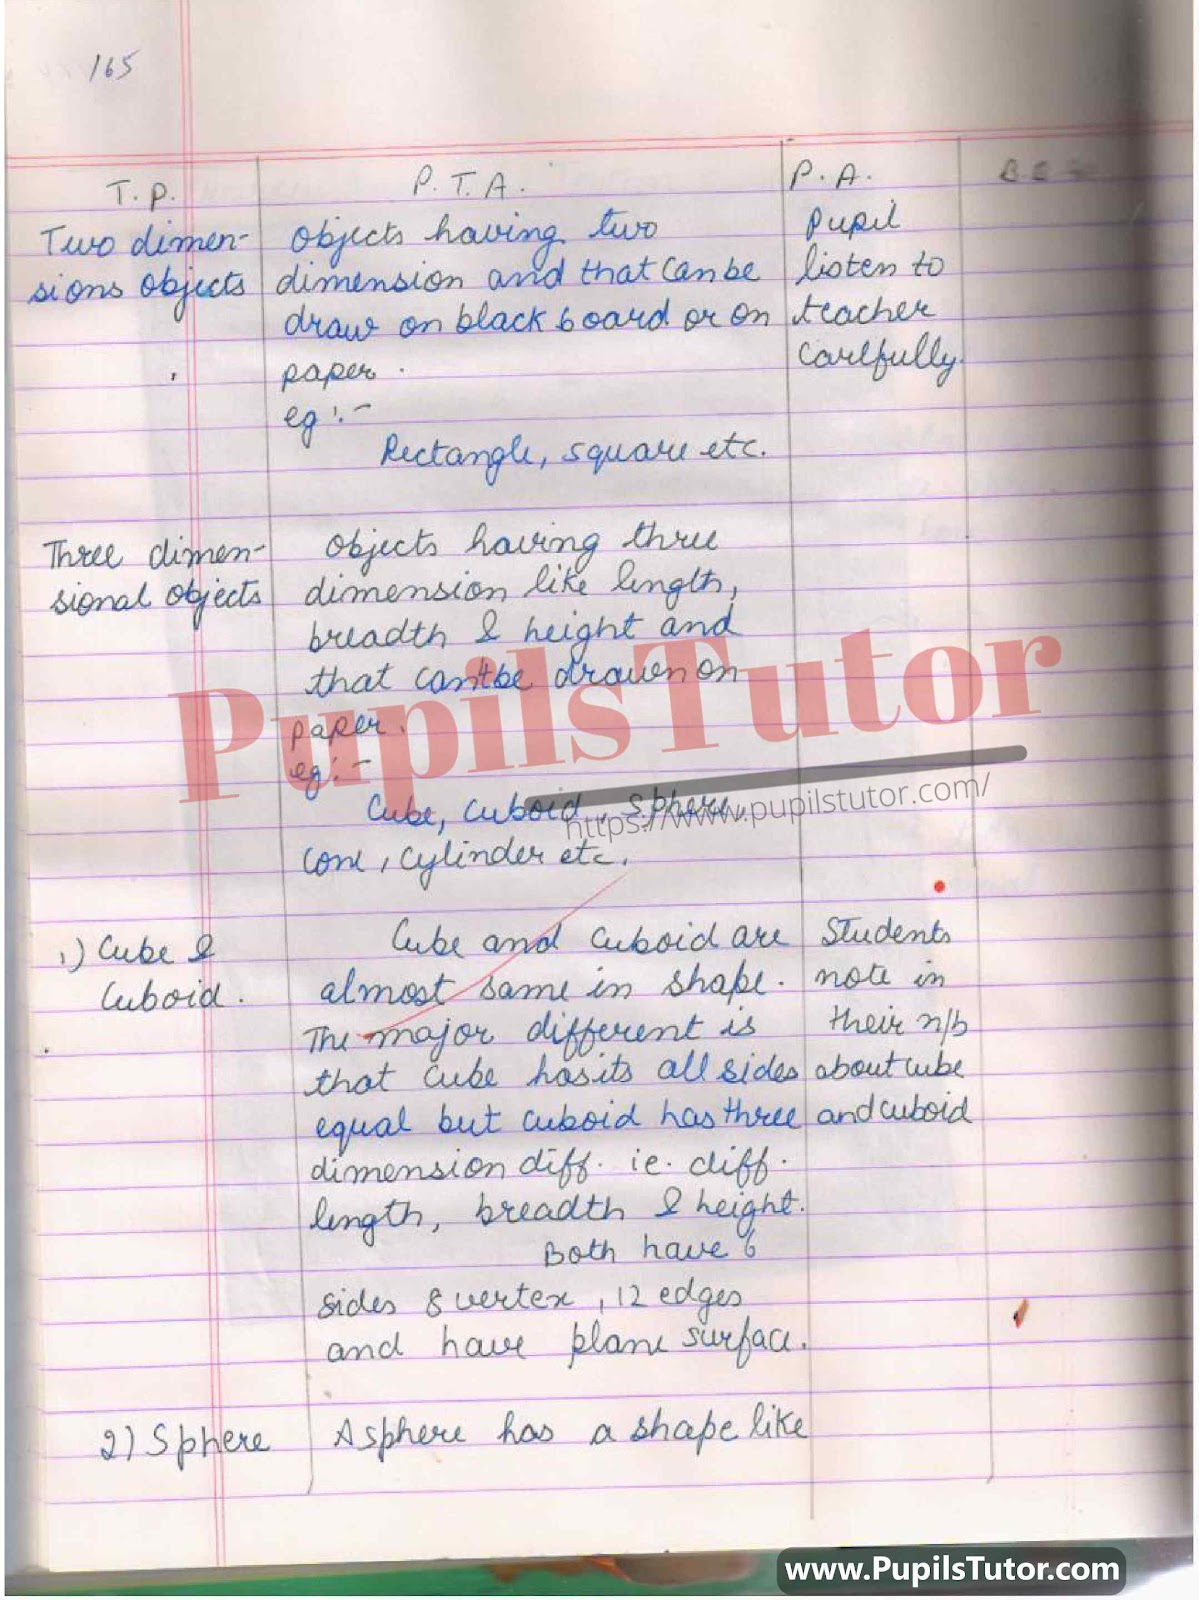 165
T.P.
P.T.A.
P.A.
Two dimen-
sions objects
objects having two
dimension and that can be
draw on black board or on
paper.
eg :-
Rectangle, square etc.
Pupil
listen to
teacher
carefully.
Three dimen-
sional objects
objects having three
dimension like length,
breadth & height and
that can't be drawen on
paper.
eg :-
Cube, cuboid, sphere,
cone, cylinder etc.
1) Cube &
Cuboid.
Cube and cuboid are
almost same in shape.
The major different is
that cube has its all sides
equal but cuboid has three
dimension diff. ie. diff.
length, breadth & height.
Both have 6
sides 8 vertex, 12 edges
and have plane surface.
Students
note in
their n/b
about cube
and cuboid
2) Sphere
A sphere has a shape like
PupilsTutor
https://www.pupilstutor.com/
www.PupilsTutor.com